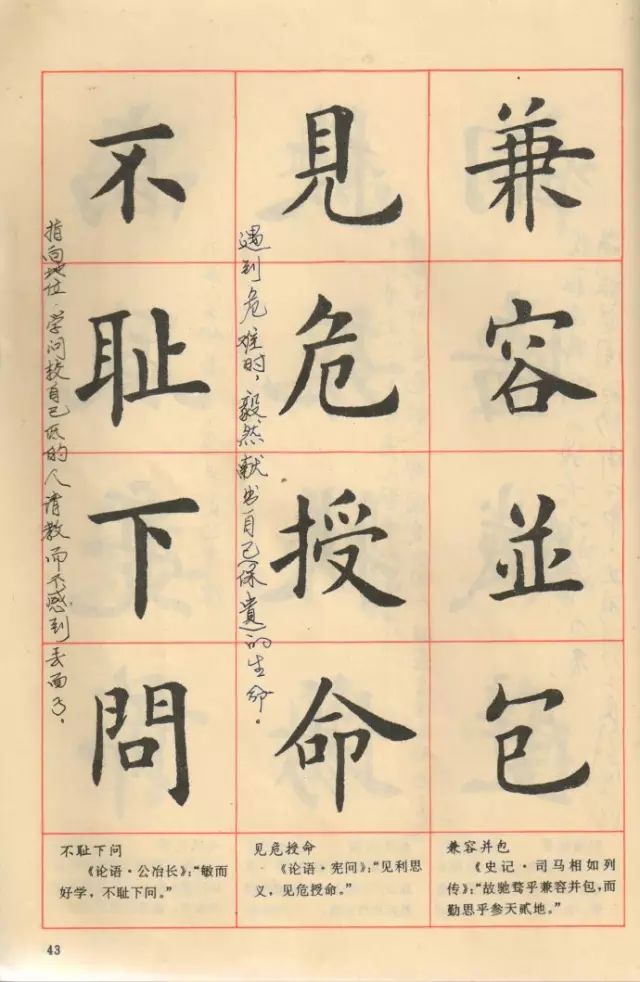 兼容並包
見危授命
遇到危难时，毅然献出自己保遺的生命。
不耻下問
指向地位、学问较自己低的人请教而不感到丢面子。
兼容并包
《史记·司马相如列
传》：“故驰骛乎兼容并包，而
勤思乎参天贰地。”
见危授命
《论语·宪问》：“见利思
义，见危授命。”
不耻下问
《论语·公冶长》：“敏而
好学，不耻下问。”
43